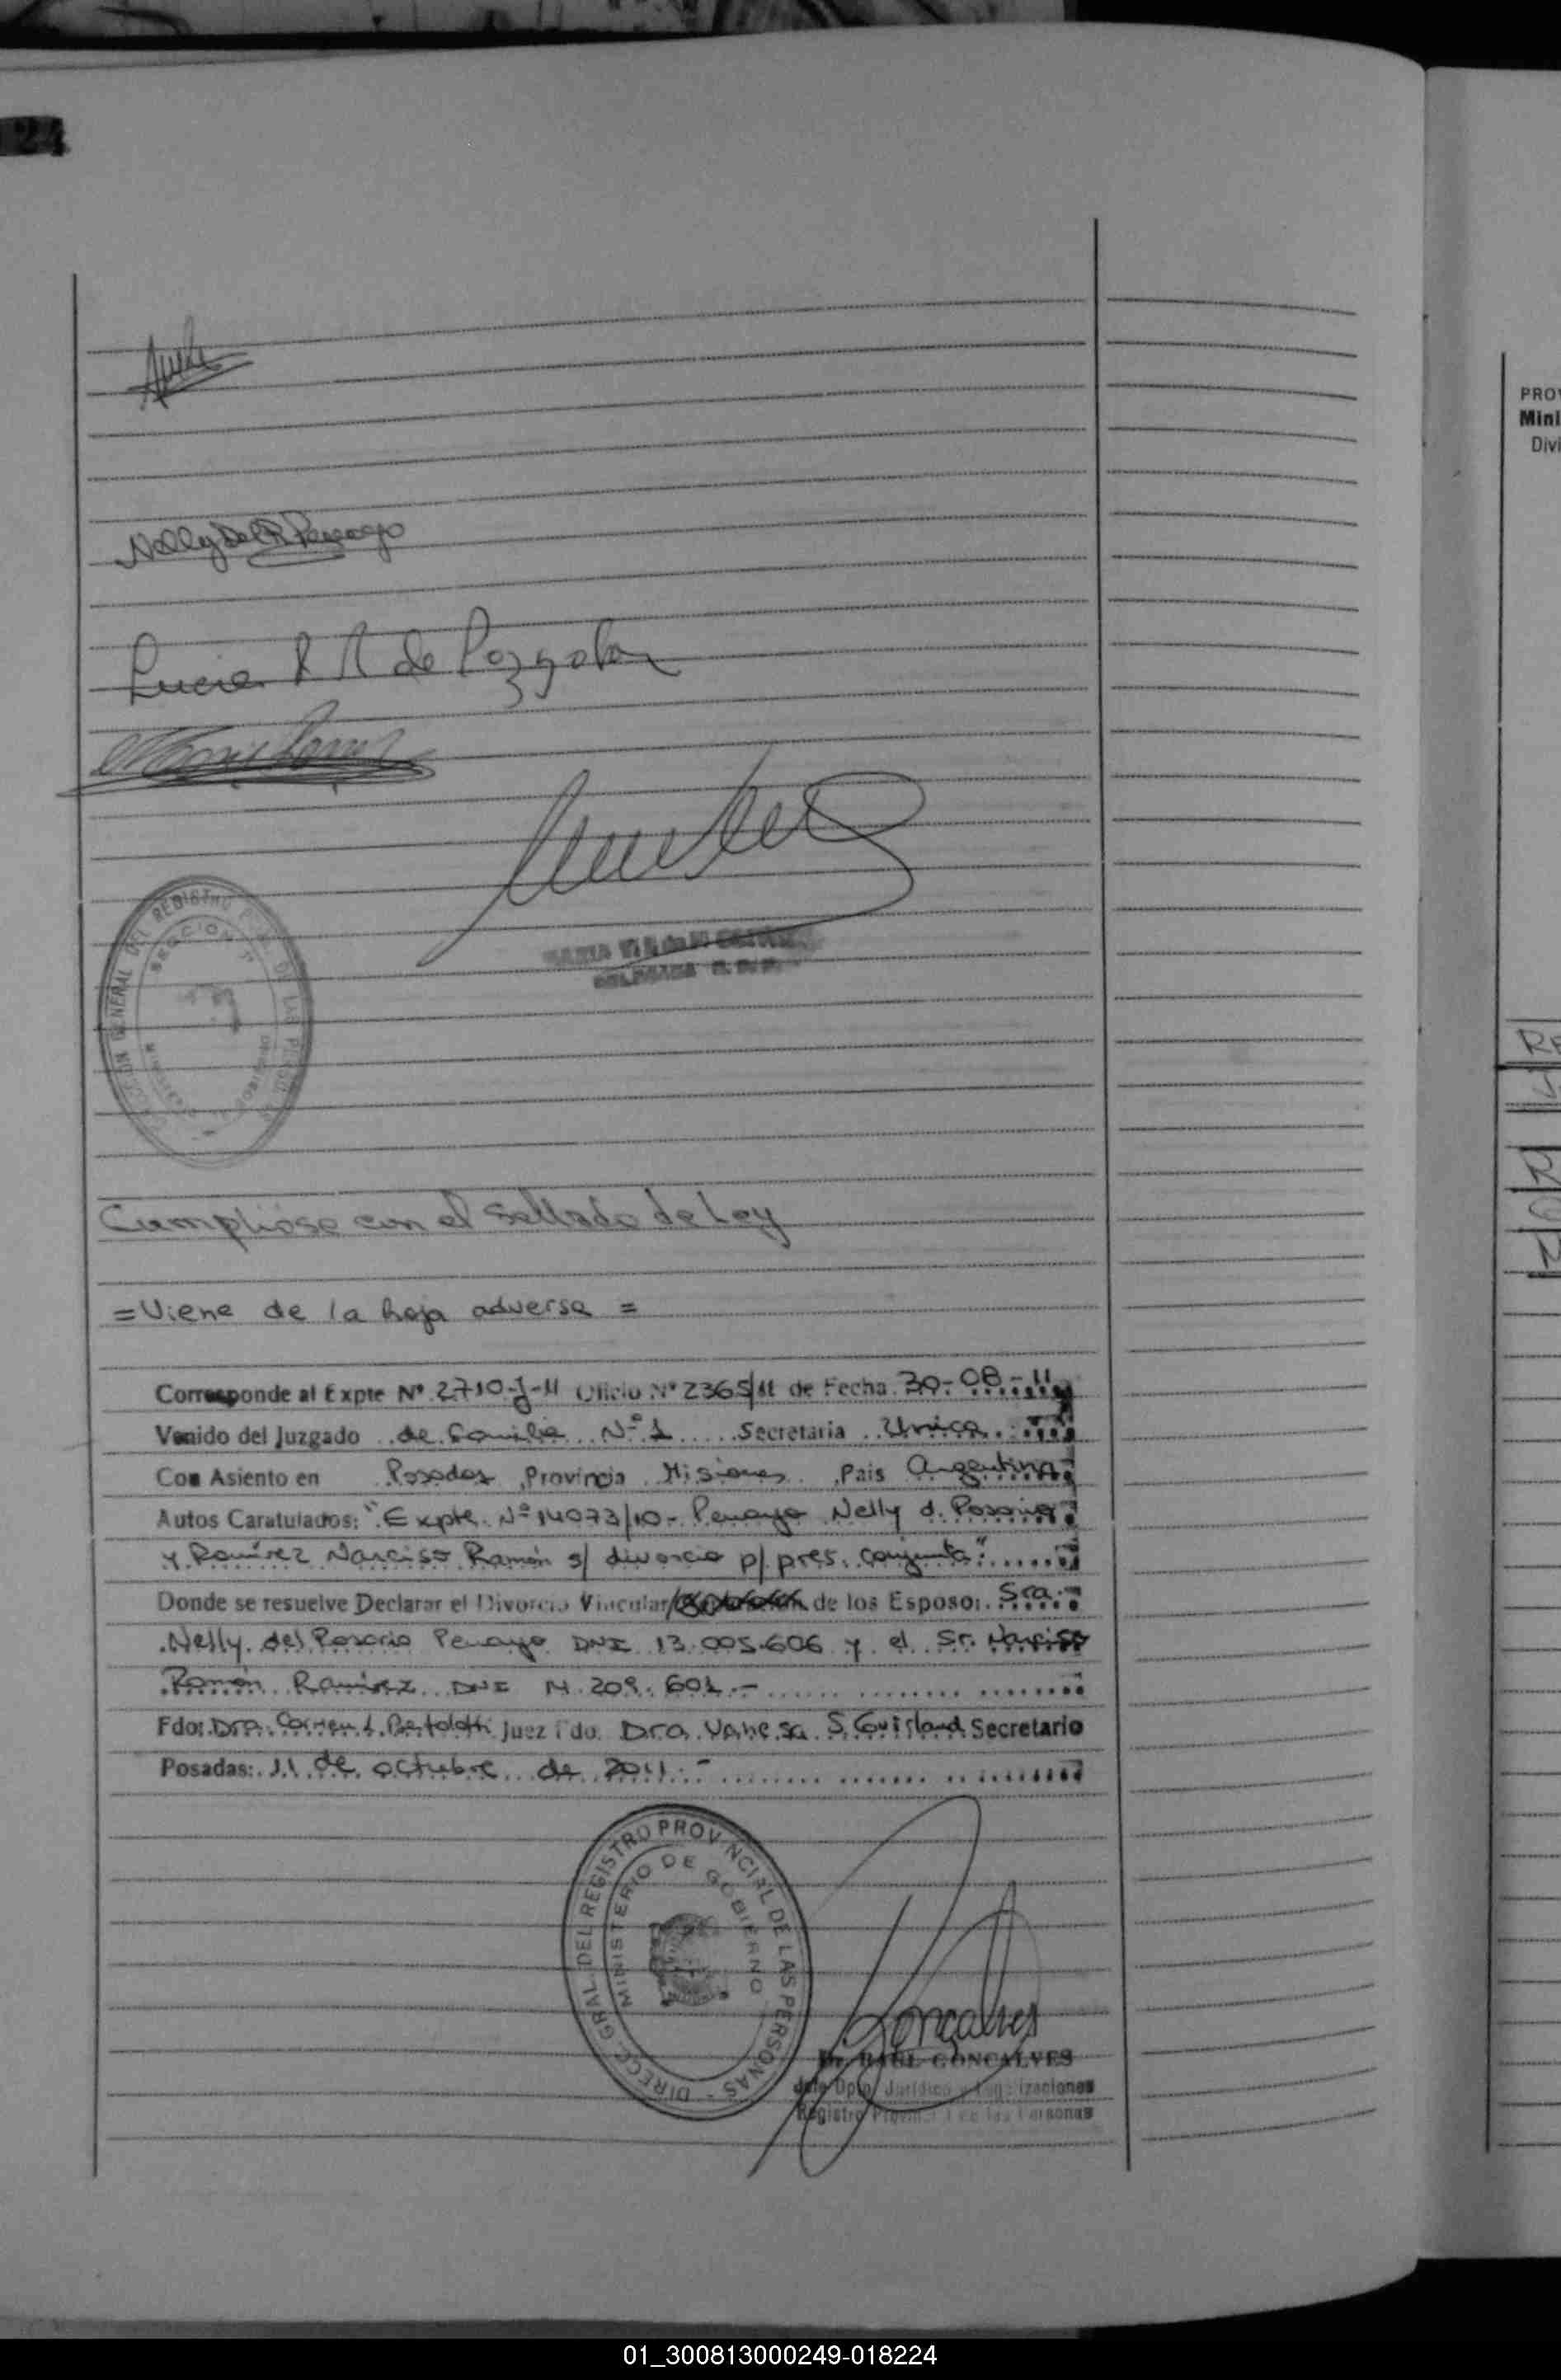 24
Nelly Del R Penayo
Lucia R R de
REGISTRO
SECCION
GENERAL DEL
DE LAS
Cumpliose con el Sellado de Ley
=Viene de la hoja adversa =
Corresponde al Expte Nº 2710-J-11 Oficio Nº 2365/11 de Fecha 30-08-11
Venido del Juzgado de Familia Nº 1 Secretaria Unica
Con Asiento en Posadas, Provincia Misiones, Pais Argentina
Autos Caratulados: "Expte. Nº 14073/10- Penayo Nelly d. Rosario
y Ramirez Narciso Ramón s/ divorcio p/ pres. conjunta"
Donde se resuelve Declarar el Divorcio Vincular/ de los Esposos: Sra.
Nelly del Rosario Penayo DNI 13.005.606 y el Sr. Narciso
Ramón Ramirez DNI 14.209.601.-
Fdo: Dra. Carmen L. Bertolotti Juez Fdo. Dra. Vanesa S. Guirland Secretario
Posadas: 11 de octubre de 2011.-
DIRECC. GRAL. DEL REGISTRO PROVINCIAL DE LAS PERSONAS -
MINISTERIO DE GOBIERNO
Goncalves
Dr. RAUL GONCALVES
Jefe Dpto. Jurídico y Legalizaciones
Registro Provincial de las Personas
PROV
Mini
Divi
01_300813000249-018224